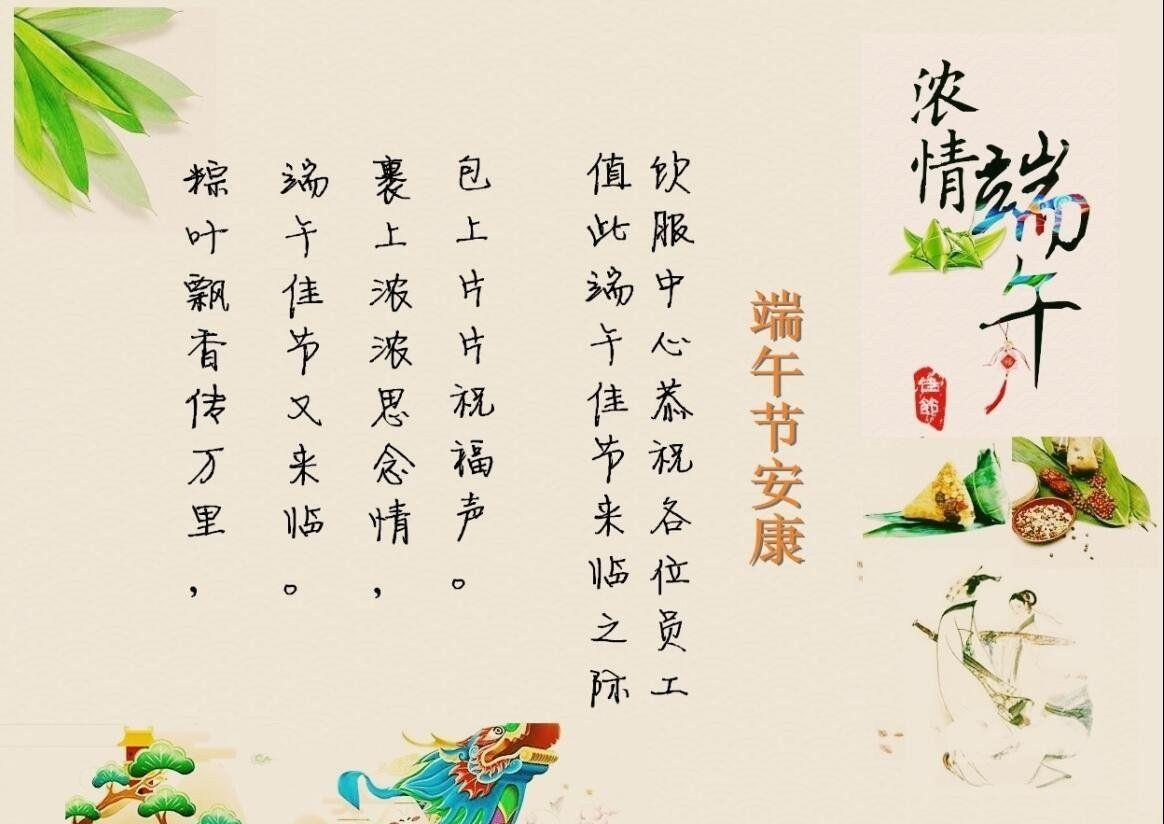 浓情
端午
佳節
端午节安康
饮服中心恭祝各位员工
值此端午佳节来临之际
包上片片祝福声。
裹上浓浓思念情，
端午佳节又来临。
粽叶飘香传万里，